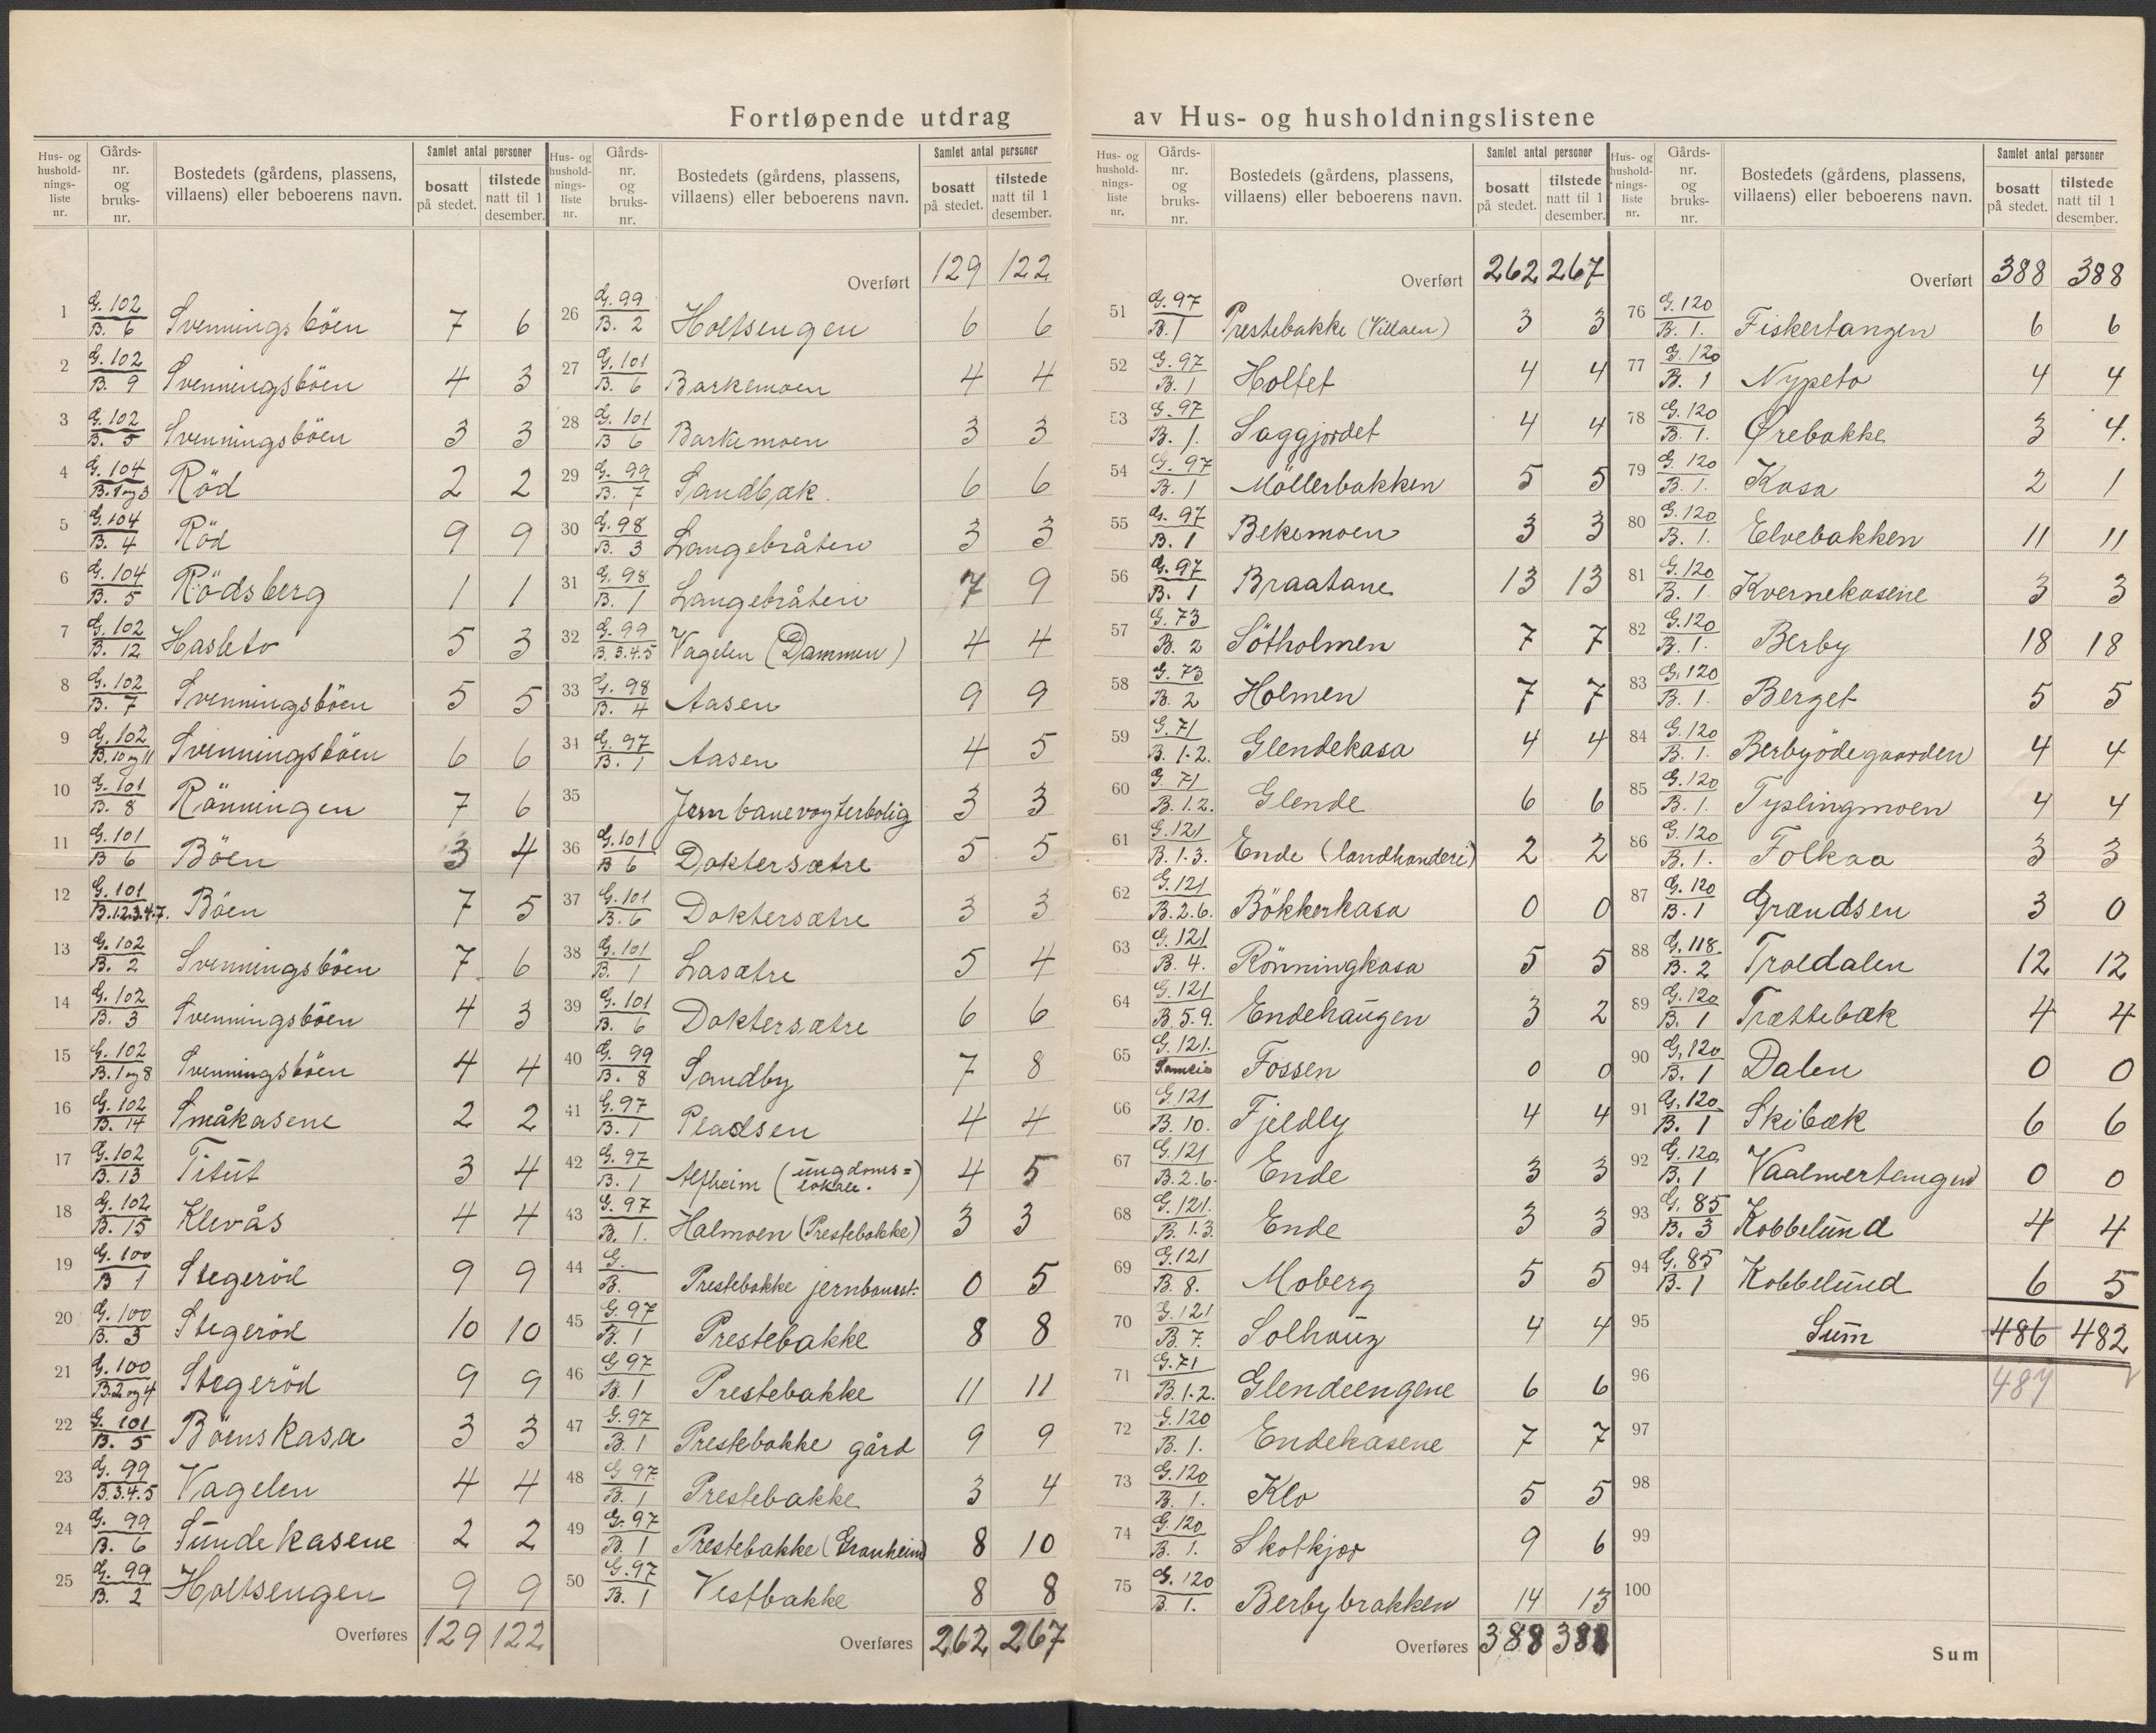 Fortløpende utdrag av Hus- og husholdningslistene
Hus- og husholdnings-liste nr. | Gårds-nr. og bruks-nr. | Bostedets (gårdens, plassens, villaens) eller beboerens navn. | Samlet antal personer: bosatt på stedet. | tilstede natt til 1 desember.
1 | G. 102 B. 6 | Svenningsböen | 7 | 6
2 | G. 102 B. 9 | Svenningsböen | 4 | 3
3 | G. 102 B. 5 | Svenningsböen | 3 | 3
4 | G. 104 B. 1 og 3 | Röd | 2 | 2
5 | G. 104 B. 4 | Röd | 9 | 9
6 | G. 104 B. 5 | Rödsberg | 1 | 1
7 | G. 102 B. 12 | Hasleto | 5 | 3
8 | G. 102 B. 7 | Svenningsböen | 5 | 5
9 | G. 102 B. 10 og 11 | Svenningsböen | 6 | 6
10 | G. 101 B. 8 | Rönningen | 7 | 6
11 | G. 101 B 6 | Böen | 3 | 4
12 | G. 101 B. 1.2.3.4.7. | Böen | 7 | 5
13 | G. 102 B. 2 | Svenningsböen | 7 | 6
14 | G. 102 B. 3 | Svenningsböen | 4 | 3
15 | G. 102 B. 1 og 8 | Svenningsböen | 4 | 4
16 | G. 102 B. 14 | Småkasene | 2 | 2
17 | G. 102 B. 13 | Titut | 3 | 4
18 | G. 102 B. 15 | Klevås | 4 | 4
19 | G. 100 B 1 | Stegeröd | 9 | 9
20 | G. 100 B. 3 | Stegeröd | 10 | 10
21 | G. 100 B. 2 og 4 | Stegeröd | 9 | 9
22 | G. 101 B. 5 | Böenskasa | 3 | 3
23 | G. 99 B. 3.4.5 | Vagelen | 4 | 4
24 | G. 99 B. 6 | Sundekasene | 2 | 2
25 | G. 99 B. 2 | Holtsengen | 9 | 9
Overføres | 129 | 122
Hus- og husholdnings-liste nr. | Gårds-nr. og bruks-nr. | Bostedets (gårdens, plassens, villaens) eller beboerens navn. | Samlet antal personer: bosatt på stedet. | tilstede natt til 1 desember.
Overført | 129 | 122
26 | G. 99 B. 2 | Holtsengen | 6 | 6
27 | G. 101 B. 6 | Barkemoen | 4 | 4
28 | G. 101 B 6 | Barkemoen | 3 | 3
29 | G. 99 B. 7 | Sandbæk. | 6 | 6
30 | G. 98 B. 3 | Langebråten | 3 | 3
31 | G. 98 B. 1 | Langebråten | 7 | 9
32 | G. 99 B. 3.4.5 | Vagelen (Dammen) | 4 | 4
33 | G. 98 B. 4 | Aasen | 9 | 9
34 | G. 97 B. 1 | Aasen | 4 | 5
35 | Jernbanevogterbolig | 3 | 3
36 | G. 101 B 6 | Doktersætre | 5 | 5
37 | G. 101 B. 6 | Doktersætre | 3 | 3
38 | G. 101 B. 1 | Lasætre | 5 | 4
39 | G. 101 B. 6 | Doktersætre | 6 | 6
40 | G. 99 B. 8 | Sandby | 7 | 8
41 | G. 97 B. 1 | Pladsen | 4 | 4
42 | G. 97 B. 1 | Alfheim (ungdoms=lokale.) | 4 | 5
43 | G. 97 B. 1. | Halmoen (Prestebakke) | 3 | 3
44 | G. B. | Prestebakke jernbanest. | 0 | 5
45 | G. 97 B. 1 | Prestebakke | 8 | 8
46 | G 97 B. 1 | Prestebakke | 11 | 11
47 | G. 97 B. 1 | Prestebakke gård | 9 | 9
48 | G 97 B. 1 | Prestebakke | 3 | 4
49 | G. 97 B. 1 | Prestebakke (Granheim) | 8 | 10
50 | G. 97 B. 1 | Vestbakke | 8 | 8
Overføres | 262 | 267
Hus- og husholdnings-liste nr. | Gårds-nr. og bruks-nr. | Bostedets (gårdens, plassens, villaens) eller beboerens navn. | Samlet antal personer: bosatt på stedet. | tilstede natt til 1 desember.
Overført | 262 | 267
51 | G. 97 B. 1 | Prestebakke (Villaen) | 3 | 3
52 | G. 97 B. 1 | Holtet | 4 | 4
53 | G. 97 B. 1. | Saggjordet | 4 | 4
54 | G. 97 B. 1 | Möllerbakken | 5 | 5
55 | G. 97 B. 1 | Bekemoen | 3 | 3
56 | G. 97 B. 1 | Braatane | 13 | 13
57 | G. 73 B. 2 | Sötholmen | 7 | 7
58 | G. 73 B. 2 | Holmen | 7 | 7
59 | G. 71 B. 1.2. | Glendekasa | 4 | 4
60 | G 71 B. 1.2. | Glende | 6 | 6
61 | G. 121 B. 1.3. | Ende (landhanderi) | 2 | 2
62 | G. 121 B. 2.6. | Bökkerkasa | 0 | 0
63 | G. 121 B. 4. | Rönningkasa | 5 | 5
64 | G. 121 B. 5.9. | Endehaugen | 3 | 2
65 | G. 121. Sameie | Fossen | 0 | 0
66 | G. 121 B. 10. | Fjeldly | 4 | 4
67 | G. 121 B. 2.6. | Ende | 3 | 3
68 | G. 121. B. 1.3. | Ende | 3 | 3
69 | G. 121 B 8. | Moberg | 5 | 5
70 | G. 121 B 7. | Solhaug | 4 | 4
71 | G. 71 B. 1.2. | Glendeengene | 6 | 6
72 | G. 120 B. 1. | Endekasene | 7 | 7
73 | G. 120 B. 1. | Klo | 5 | 5
74 | G. 120 B. 1. | Skotkjær | 9 | 6
75 | G. 120 B. 1. | Berbybrakken | 14 | 13
Overføres | 388 | 388
Hus- og husholdnings-liste nr. | Gårds-nr. og bruks-nr. | Bostedets (gårdens, plassens, villaens) eller beboerens navn. | Samlet antal personer: bosatt på stedet. | tilstede natt til 1 desember.
Overført | 388 | 388
76 | G. 120 B. 1. | Fiskertangen | 6 | 6
77 | G. 120 B. 1 | Nypeto | 4 | 4
78 | G. 120 B. 1. | Ørebakke | 3 | 4.
79 | G. 120 B. 1. | Kasa | 2 | 1
80 | G. 120 B. 1. | Elvebakken | 11 | 11
81 | G. 120 B. 1. | Kvernekasene | 3 | 3
82 | G. 120 B. 1. | Berby | 18 | 18
83 | G. 120 B. 1. | Berget | 5 | 5
84 | G. 120 B. 1. | Berbyödegaarden | 4 | 4
85 | G. 120 B. 1. | Typlingmoen | 4 | 4
86 | G. 120 B. 1. | Folkaa | 3 | 3
87 | G. 120 B. 1 | Grændsen | 3 | 0
88 | G. 118. B. 2 | Troldalen | 12 | 12
89 | G. 120 B. 1 | Trættebæk | 4 | 4
90 | G. 120 B. 1 | Dalen | 0 | 0
91 | G. 120 B. 1 | Skibæk | 6 | 6
92 | G. 120 B. 1 | Vaalmertangen | 0 | 0
93 | G. 85 B. 3 | Kobbelund | 4 | 4
94 | G. 85 B. 1 | Kobbelund | 6 | 5
95 | Sum | 486 | 482
96 | 487
97
98
99
100
Sum